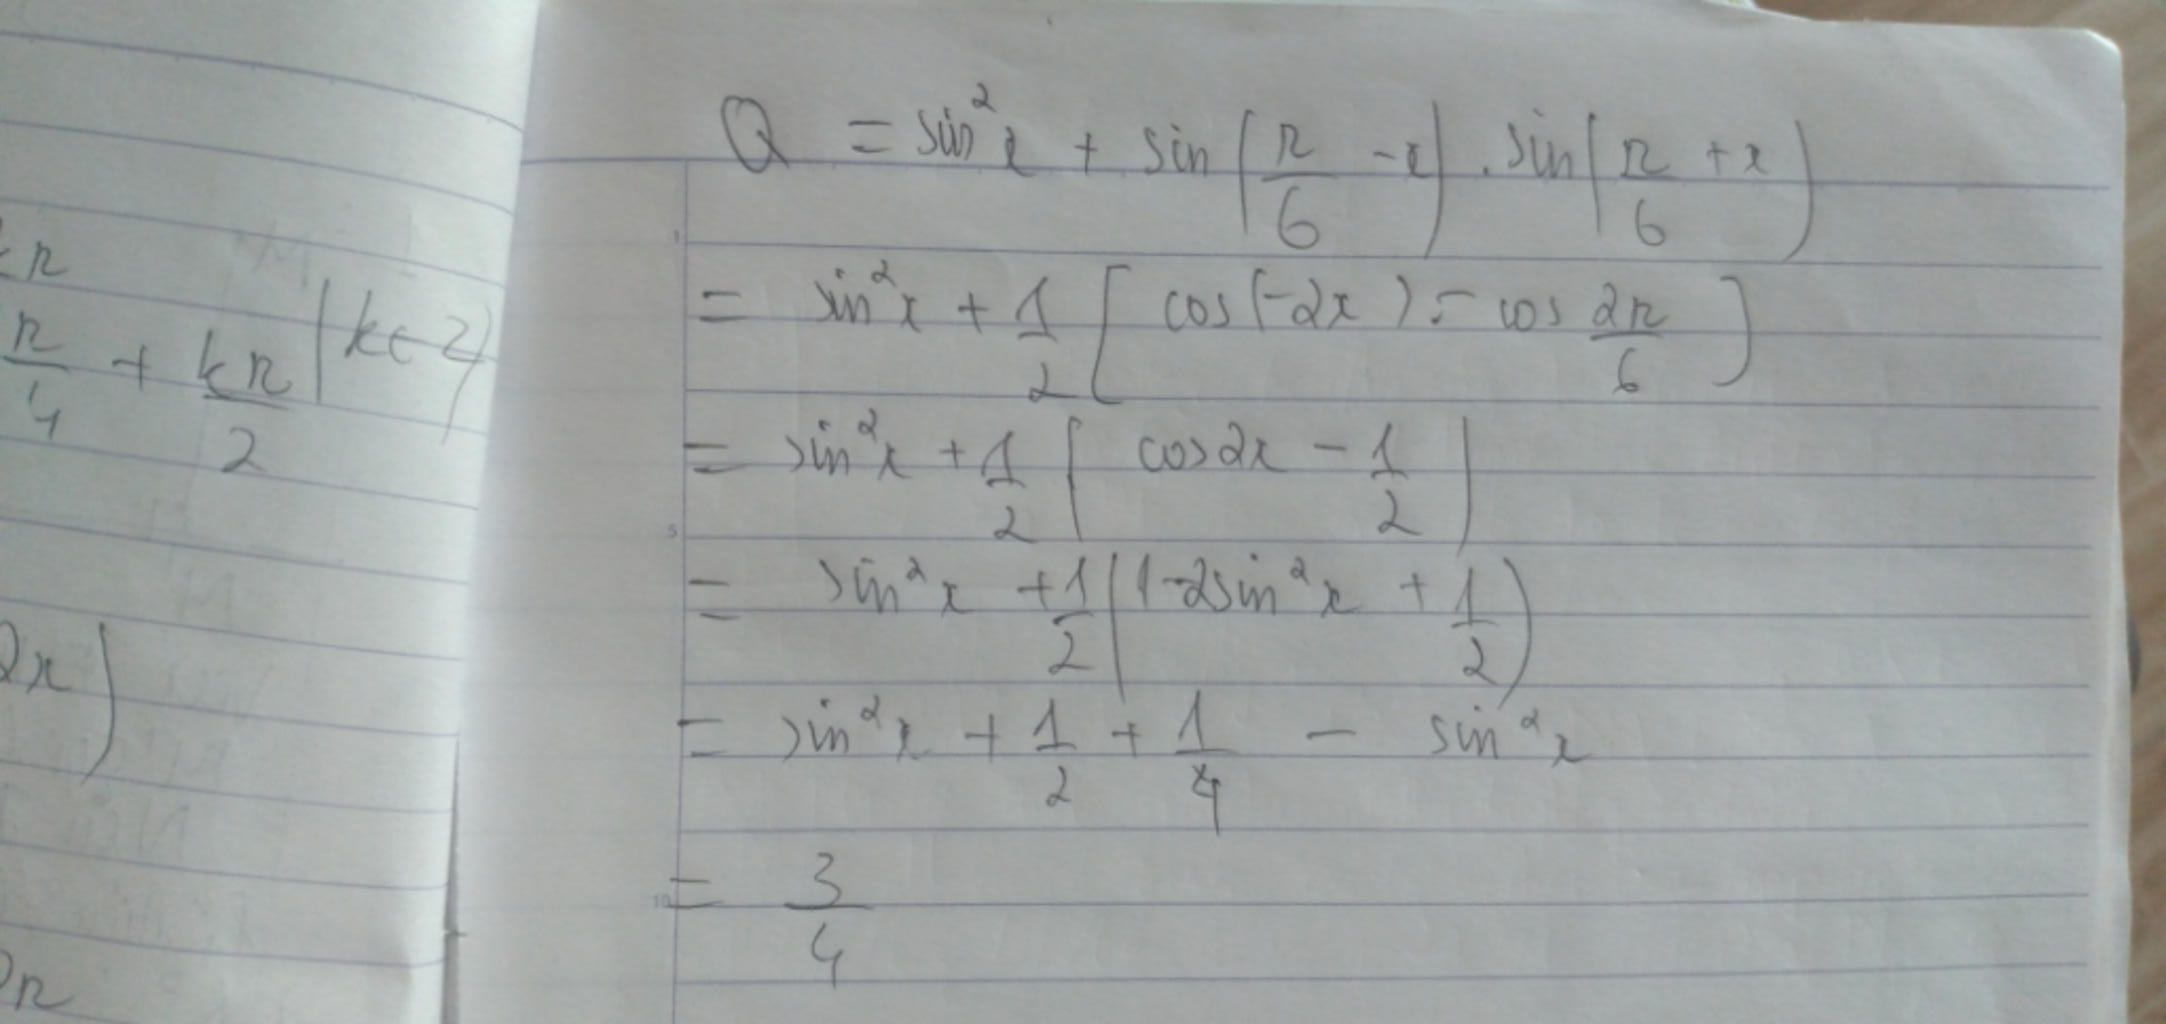 kπ
π/4 + kπ/2 (k∈Z)
2x)
2π
Q = sin²x + sin(π/6 - x) . sin(π/6 + x)
= sin²x + 1/2 [ cos(-2x) - cos 2π/6 ]
= sin²x + 1/2 [ cos2x - 1/2 ]
= sin²x + 1/2 (1-2sin²x + 1/2)
= sin²x + 1/2 + 1/4 - sin²x
= 3/4